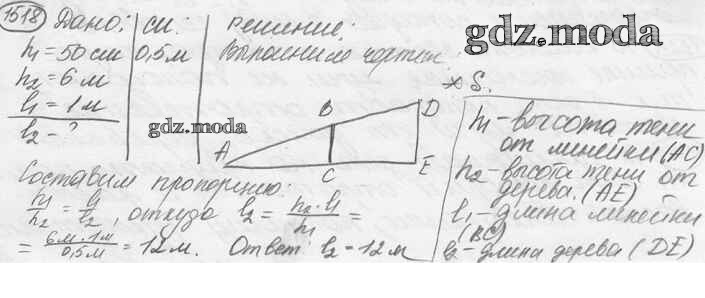 1518 Дано: | си. | решение:
h₁ = 50 см | 0,5 м | Выполним чертеж
h₂ = 6 м
l₁ = 1 м
l₂ - ?
gdz.moda
gdz.moda
* S.
B
D
A
C
E
h₁ - высота тени
от линейки (AC)
h₂ - высота тени от
дерева. (AE)
l₁ - длина линейки
(BC)
l₂ - длина дерева (DE)
Составим пропорцию:
h₁/h₂ = l₁/l₂, откуда l₂ = h₂·l₁/h₁ =
= 6м·1м/0,5м = 12 м. Ответ l₂ - 12 м